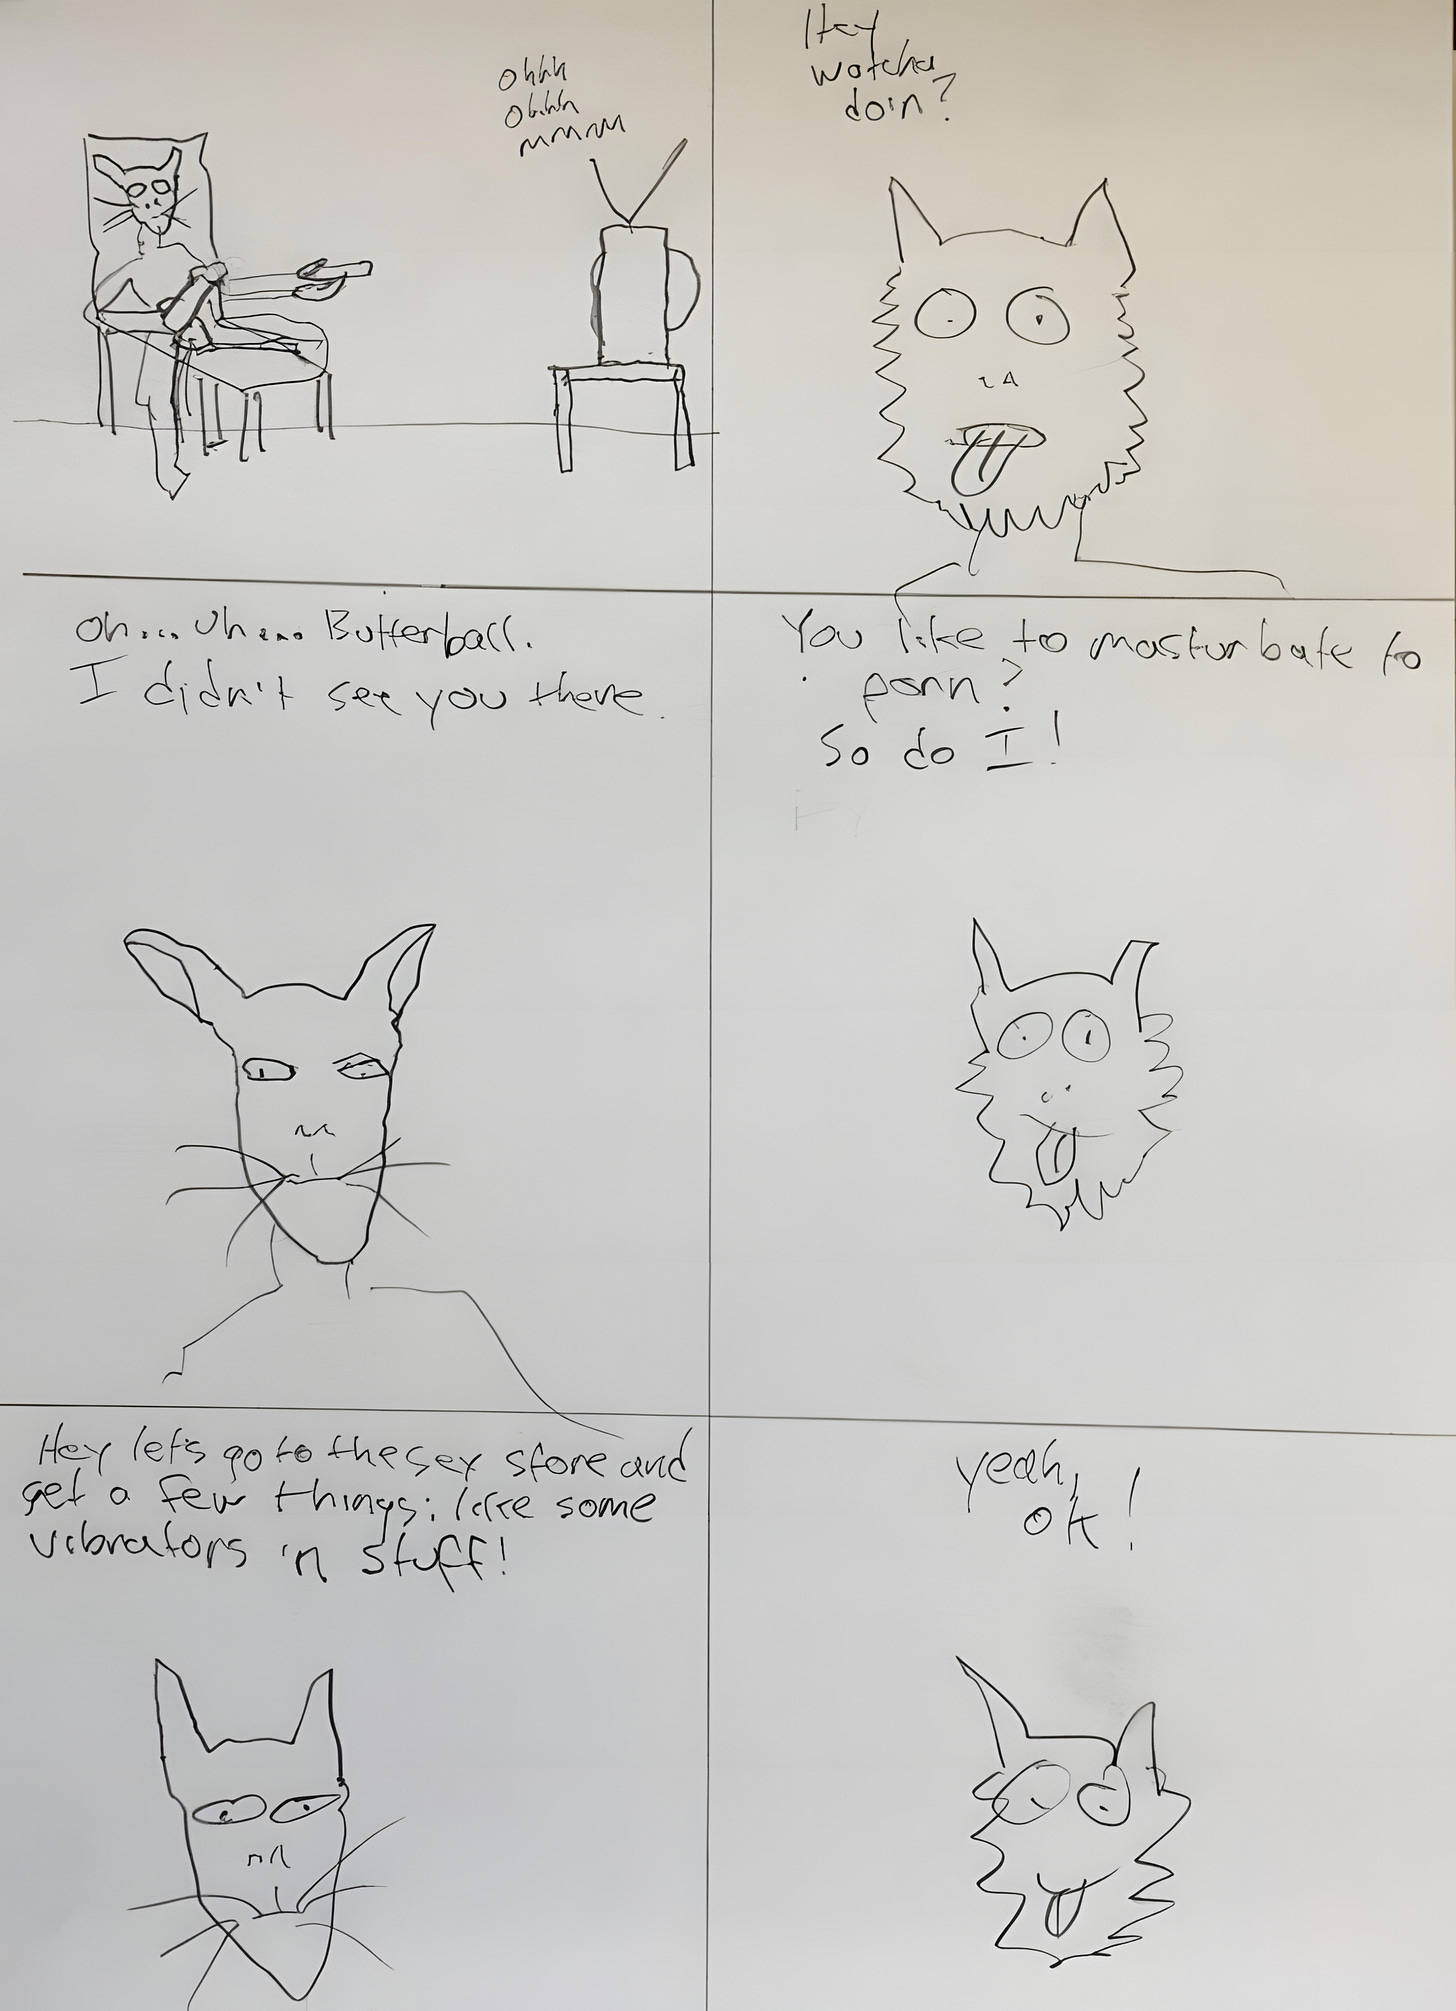 Ohhh
Ohhh
mmmm
Hey
watcha
doin?
Oh... Uh.... Butterball.
I didn't see you there.
You like to masturbate to
porn?
So do I!
Hey let's go to the sex store and
get a few things; like some
vibrators 'n stuff!
yeah,
ok!